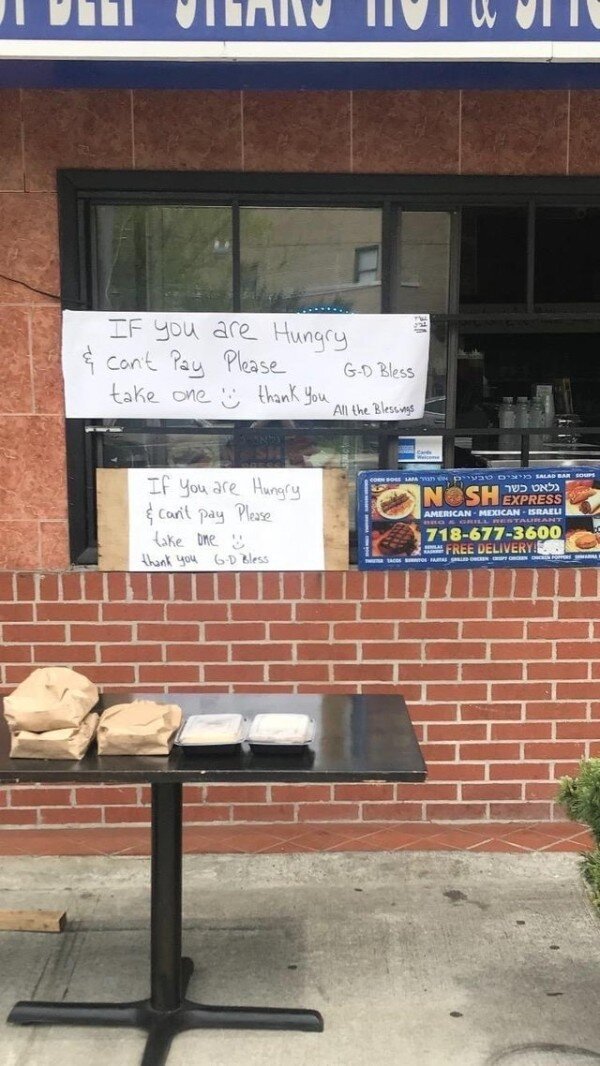 IF you are Hungry
& can't Pay Please
take one :) thank you
G-D Bless
All the Blessings
IF You are Hungry
& can't pay Please
take one :)
thank you G-D Bless
Cards Welcome
CORN DOGS LAFA SALAD BAR SOUPS
גלאט כשר
NOSH EXPRESS
AMERICAN - MEXICAN - ISRAELI
BBQ & GRILL RESTAURANT
718-677-3600
FREE DELIVERY!